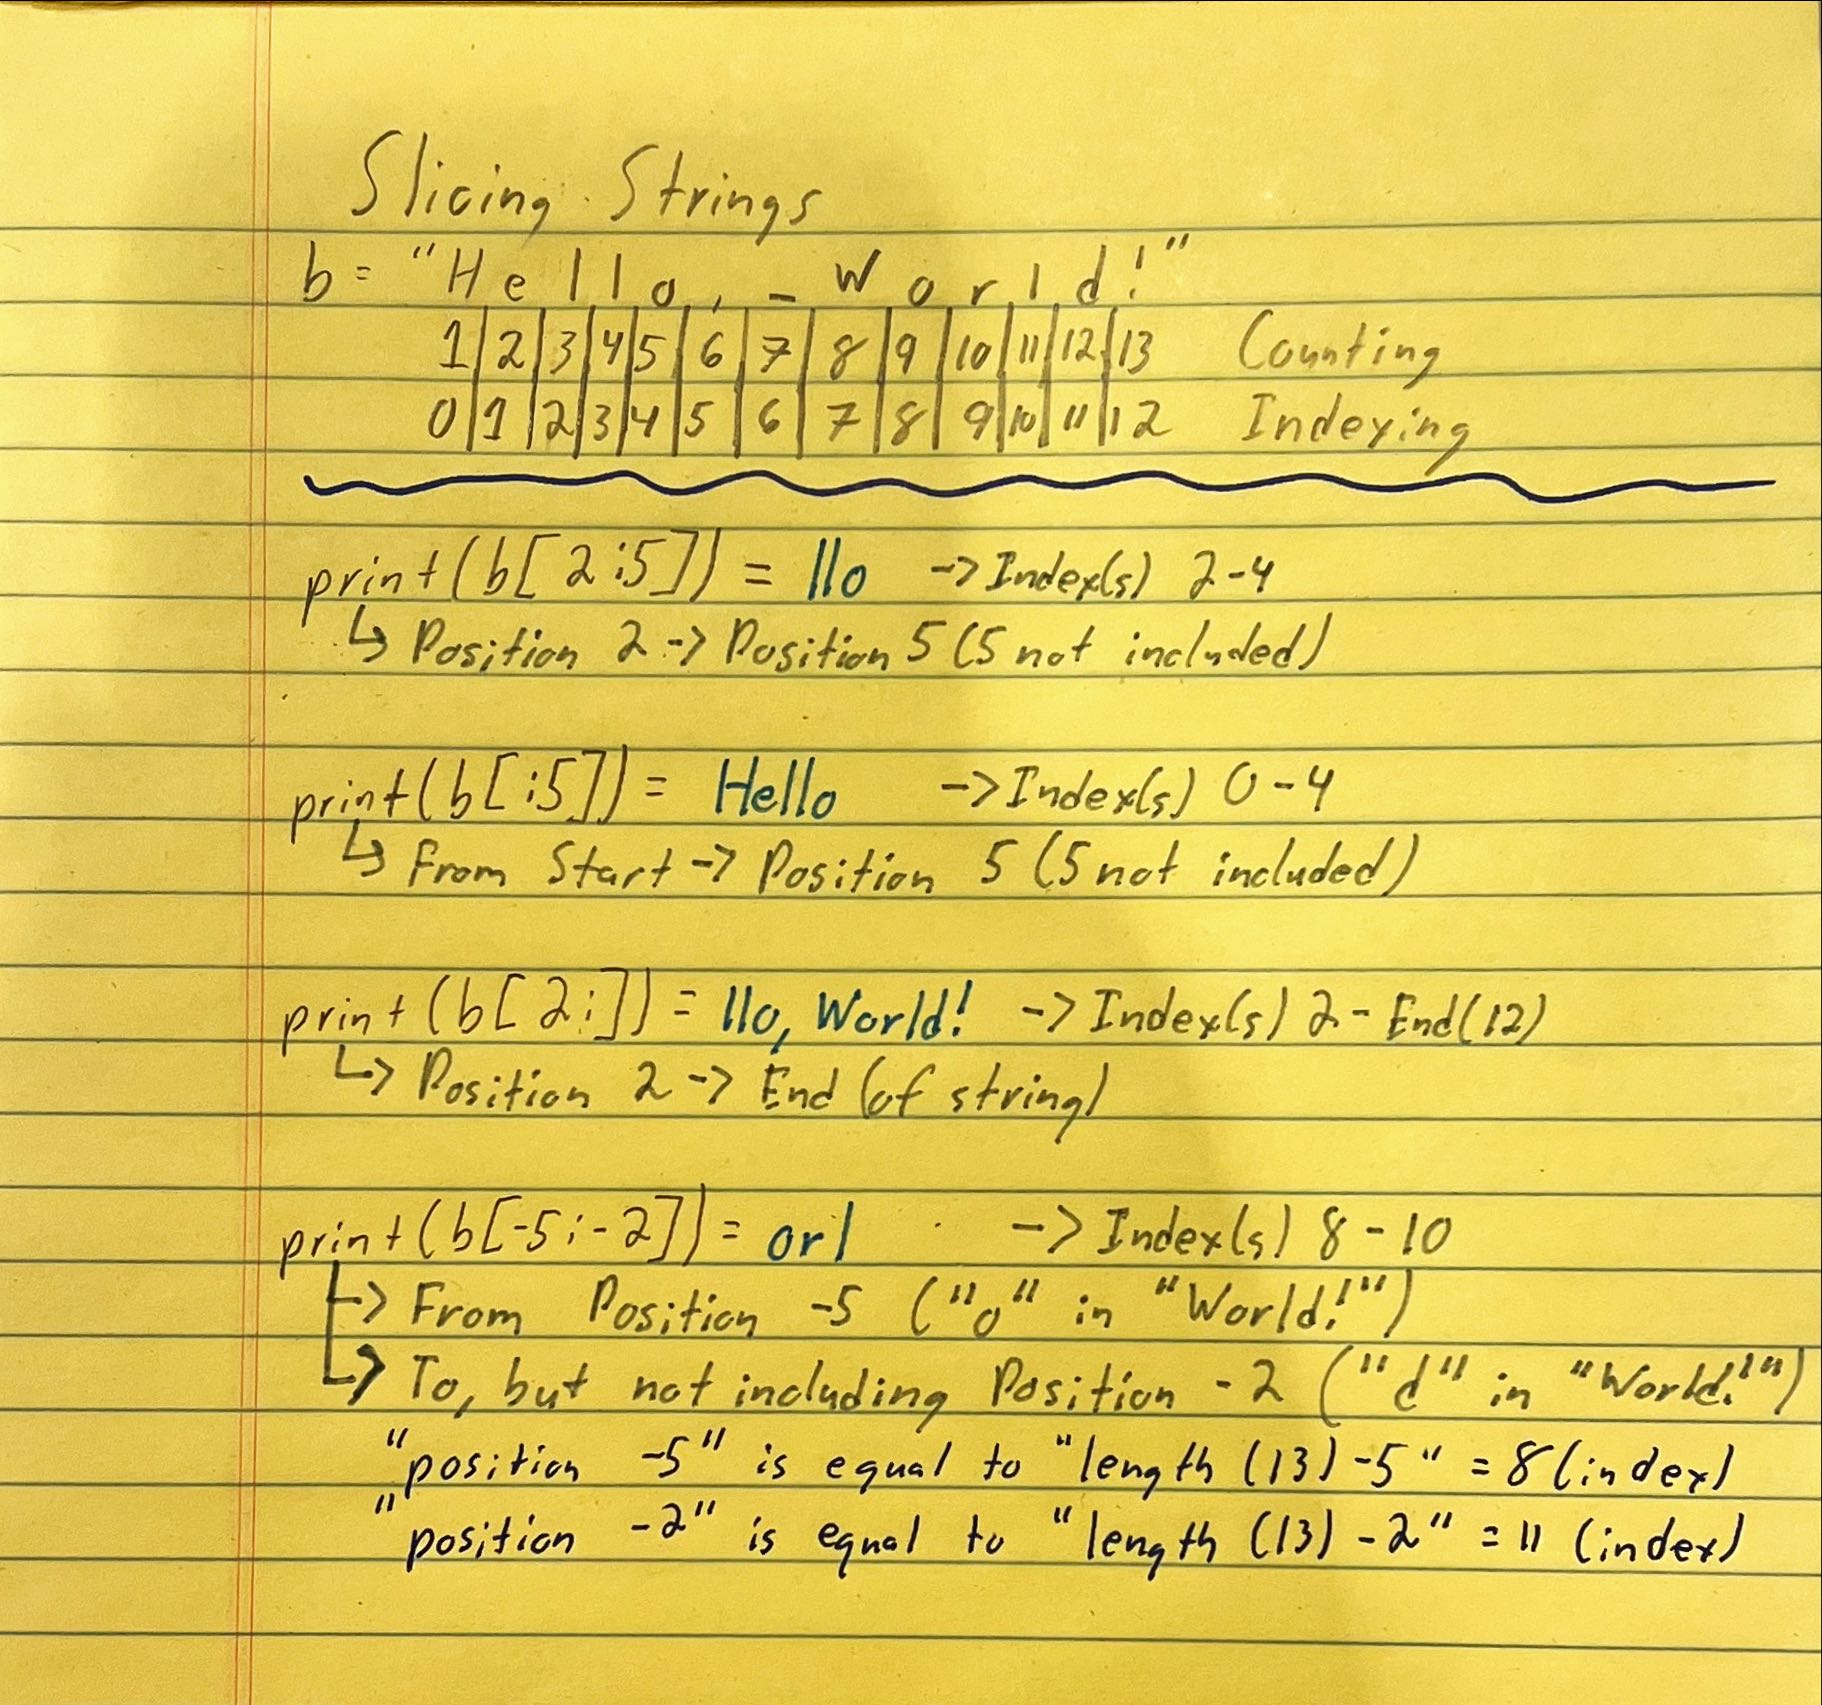 Slicing Strings
b = "Hello,_World!"
1|2|3|4|5|6|7|8|9|10|11|12|13 Counting
0|1|2|3|4|5|6|7|8|9|10|11|12 Indexing
print(b[2:5]) = llo -> Index(s) 2-4
↳ Position 2 -> Position 5 (5 not included)
print(b[:5]) = Hello -> Index(s) 0-4
↳ From Start -> Position 5 (5 not included)
print(b[2:]) = llo, World! -> Index(s) 2 - End(12)
↳ Position 2 -> End (of string)
print(b[-5:-2]) = orl -> Index(s) 8-10
↳ From Position -5 ("o" in "World!")
↳ To, but not including Position -2 ("d" in "World!")
"position -5" is equal to "length (13) -5" = 8 (index)
"position -2" is equal to "length (13) -2" = 11 (index)